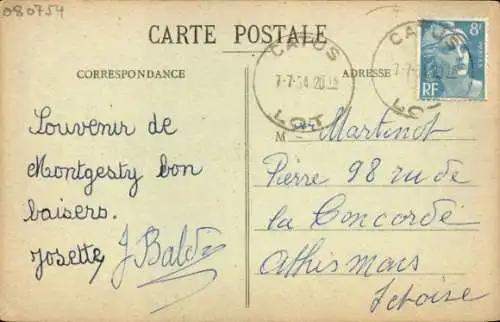 080754
CARTE POSTALE
CORRESPONDANCE
ADRESSE
CATUS
7-7-54 20
LOT
CATUS
LOT
8F
RF
Souvenir de
Montgesty bon
baisers.
Josette, J Balde
M Martinot
Pierre 98 rue de
la Concorde
Athis mars